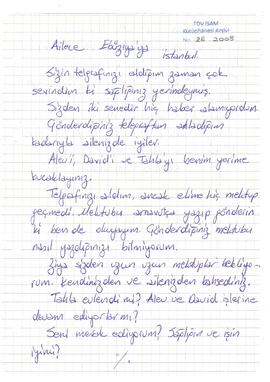 TDV İSAM
Kütüphanesi Arşivi
No. 2E 2008
Ailece Ebüziya'ya
istanbul
Sizin telgrafınızı aldığım zaman çok
sevindim ki sağlığınız yerindeymiş.
Sizden iki senedir hiç haber alamıyordum.
Gönderdiğiniz telgraftan anladığım
kadarıyla ailenizde iyiler.
Alev'i, David'i ve Talha'yı benim yerime
kucaklayınız.
Telgrafınızı aldım, ancak elime hiç mektup
geçmedi. Mektubu arnavutça yazıp gönderin
ki ben de okuyayım. Gönderdiğiniz mektubu
nasıl yazdığınızı bilmiyorum.
Ziya sizden uzun uzun mektuplar bekliyo-
rum. Kendinizden ve ailenizden bahsediniz.
Talha evlendi mi? Alev ve David işlerine
devam ediyorlar mı?
Seni merak ediyorum? Sağlığın ve işin
iyi mi?
./.